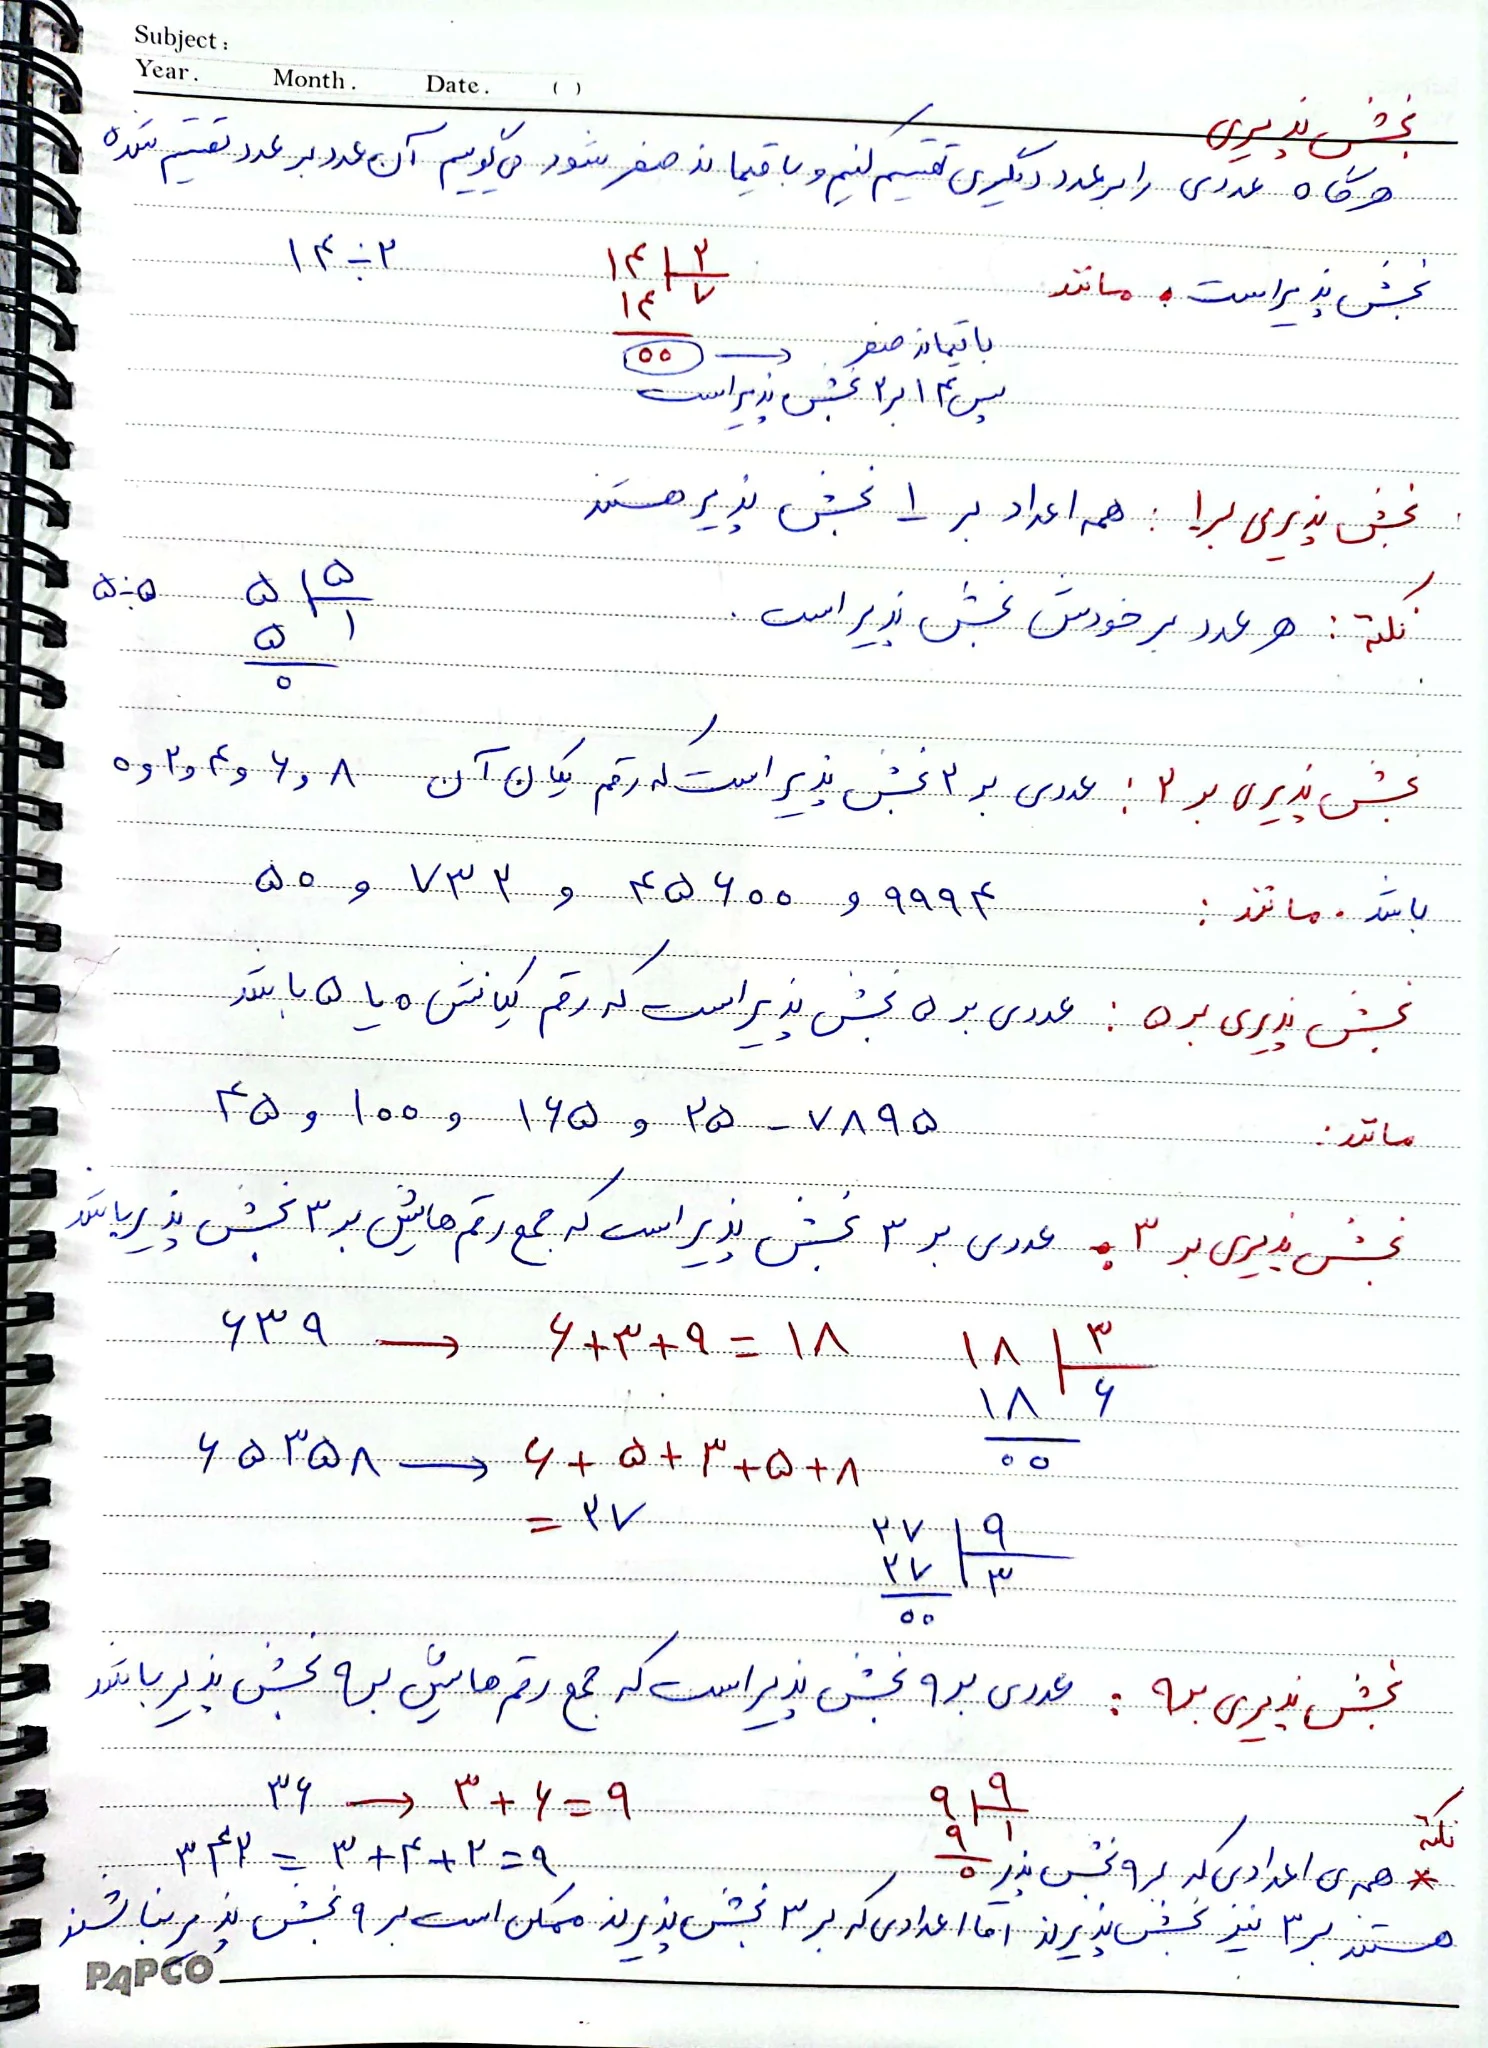 Subject :
Year . Month . Date . ( )
بخش پذیری
هرگاه عددی را بر عدد دیگری تقسیم کنیم و باقیمانده صفر شود می گوییم آن عدد بر عدد تقسیم شده
بخش پذیر است . مانند
۱۴ | ۲
۱۴ ÷ ۲
۱۴ ۷
۰۰ → باقیمانده صفر
پس ۱۴ بر ۲ بخش پذیر است
بخش پذیری بر ۱ : همه اعداد بر ۱ بخش پذیر هستند
نکته : هر عدد بر خودش بخش پذیر است .
۵ | ۵
۵ ÷ ۵
۵ ۱
۰
بخش پذیری بر ۲ : عددی بر ۲ بخش پذیر است که رقم یکان آن ۸ و ۶ و ۴ و ۲ و ۰
باشد . مانند : ۹۹۹۴ و ۴۵۶۰۰ و ۷۳۲ و ۵۰
بخش پذیری بر ۵ : عددی بر ۵ بخش پذیر است که رقم یکانش ۰ یا ۵ باشد
مانند : ۷۸۹۵ - ۲۵ و ۱۶۵ و ۱۰۰ و ۴۵
بخش پذیری بر ۳ : عددی بر ۳ بخش پذیر است که جمع رقم هایش بر ۳ بخش پذیر باشد
۶۳۹ → ۶+۳+۹ = ۱۸
۱۸ | ۳
۱۸ ۶
۰۰
۶۵۳۵۸ → ۶+۵+۳+۵+۸
= ۲۷
۲۷ | ۹
۲۷ ۳
۰۰
بخش پذیری بر ۹ : عددی بر ۹ بخش پذیر است که جمع رقم هایش بر ۹ بخش پذیر باشد
۳۶ → ۳+۶=۹
۹ | ۹
۹ ۱
۰
۳۴۲ = ۳+۴+۲=۹
نکته
* همه ی اعدادی که بر ۹ بخش پذیر
هستند بر ۳ نیز بخش پذیرند اما اعدادی که بر ۳ بخش پذیرند ممکن است بر ۹ بخش پذیر نباشند
PAPCO